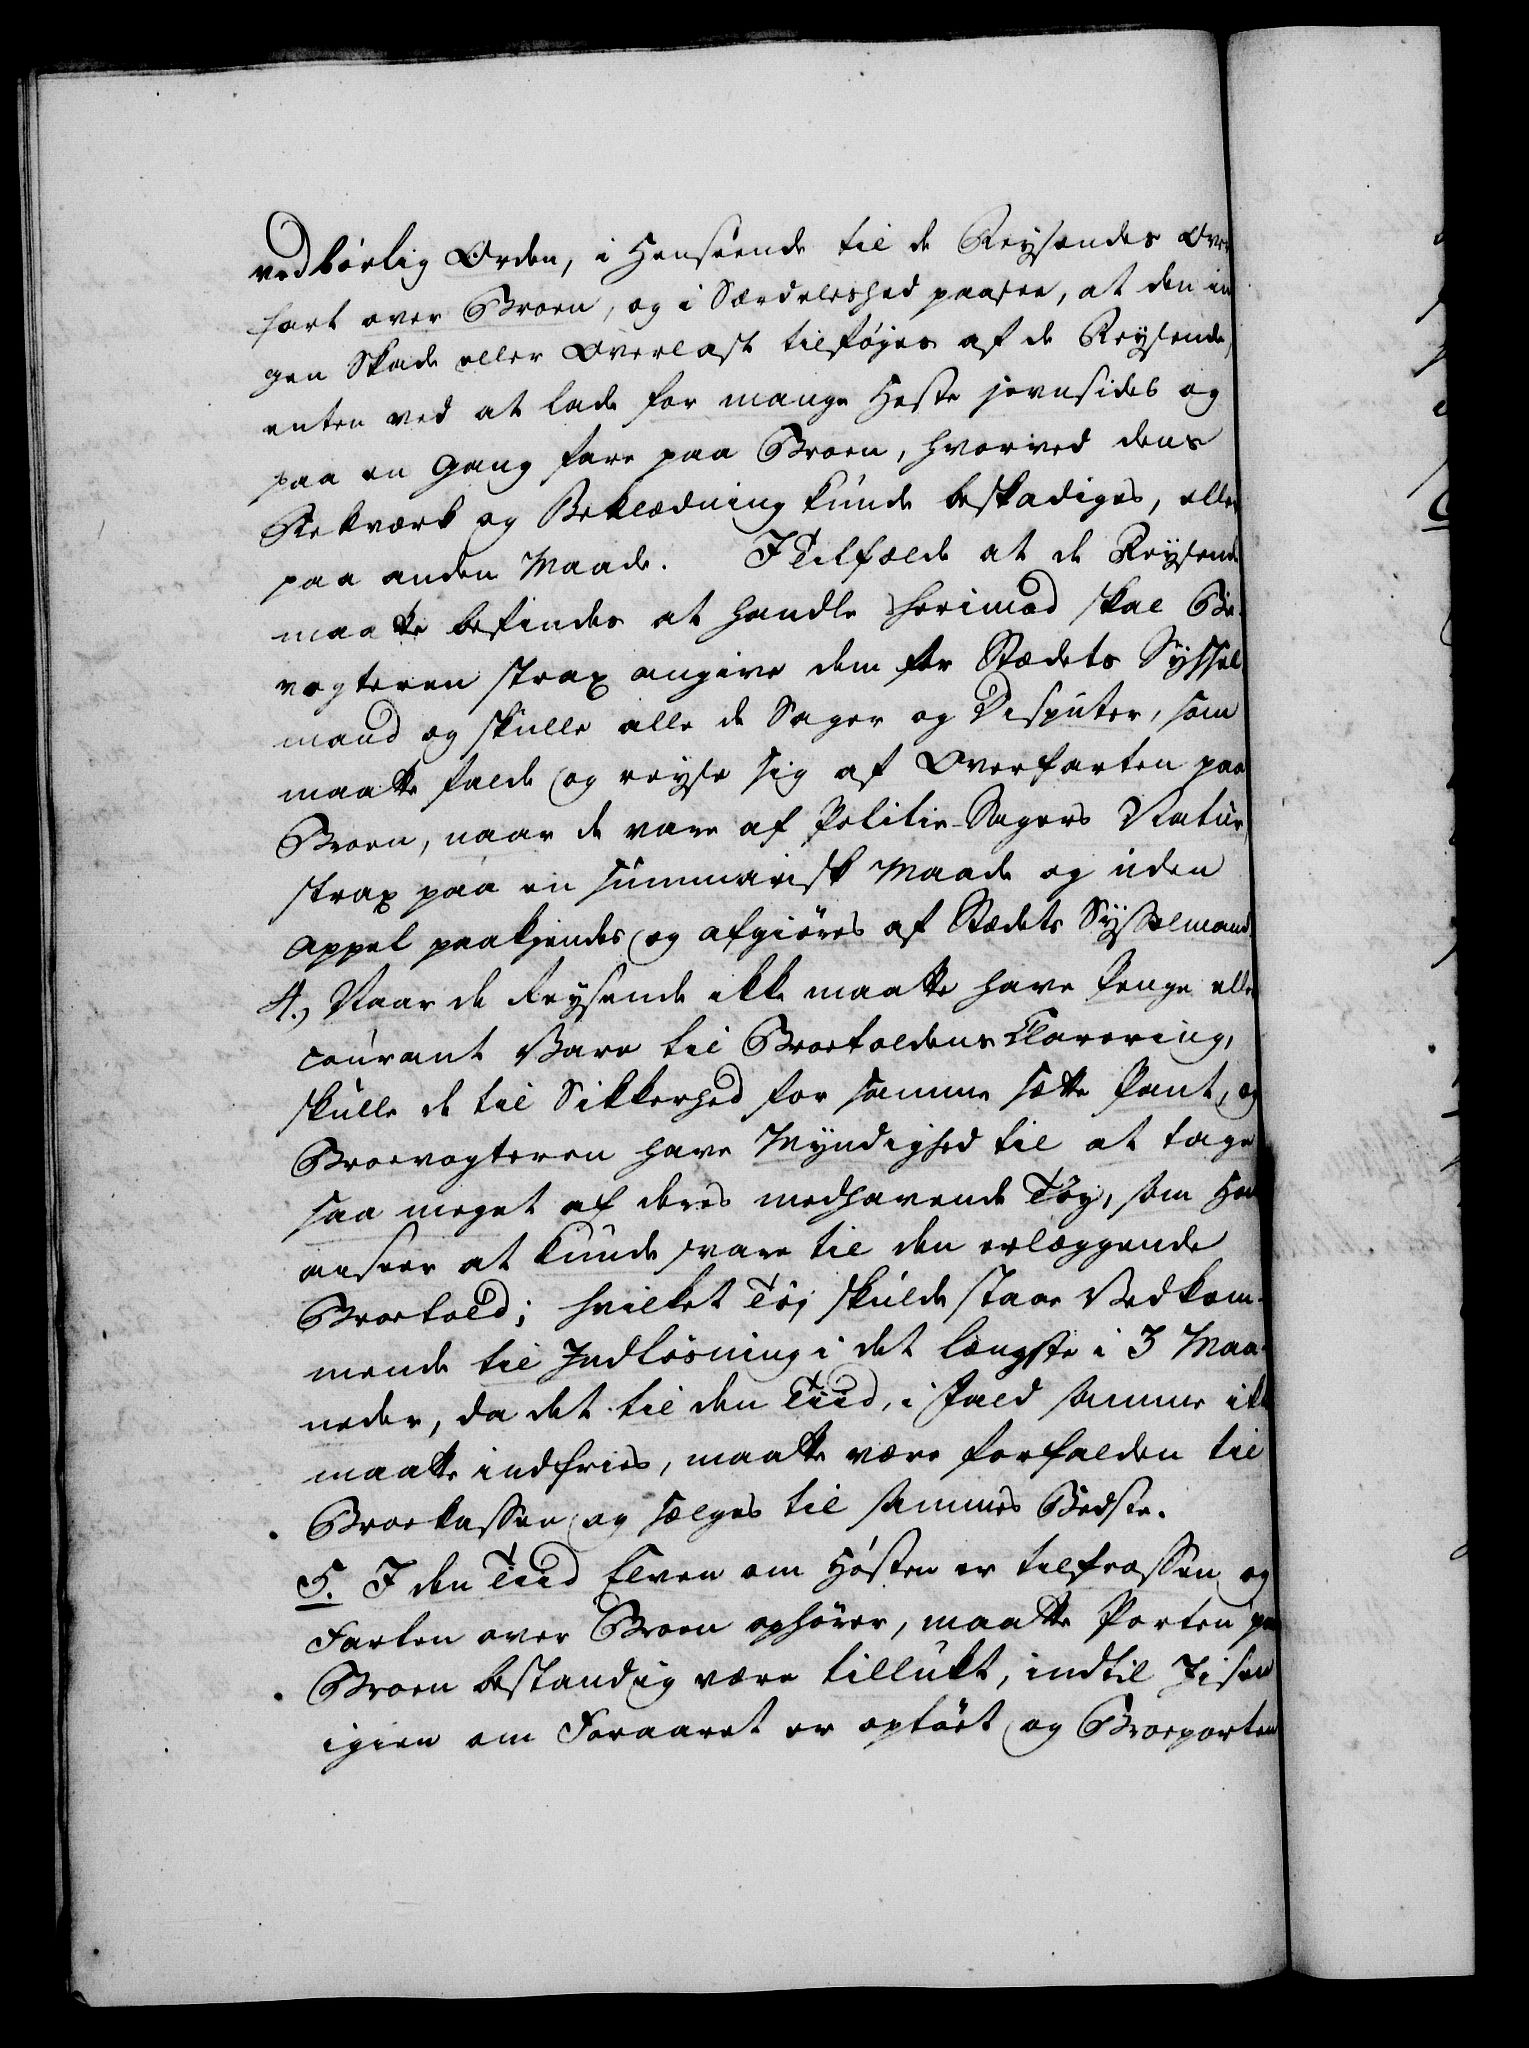 vedbørlig Orden, i Henseende til de Reysendes Over
fart over Broen, og i Særdeleshed paasee, at den in
gen Skade eller Overlast tilføjes af de Reysende,
enten ved at lade for mange Heste jevnsides og
paa en Gang fare paa Broen, hvorved dens
Rekværk og Beklædning kunde beskadiges, eller
paa anden Maade. I Tilfælde at de Reysende
maatte befindes at handle herimod skal Bro-
vogteren strax angive dem for Stædets Syssel
mand og skulle alle de Sager og Disputer, som
maatte falde og reyse sig af Overfarten paa
Broen, naar de vare af Politie-Sagers Natur,
strax paa en summarisk Maade og uden
Appel paakjendes og afgiøres af Stædets Sysselmand.
4., Naar de Reysende ikke maatte have Penge eller
courant Vare til Broetoldens Clarering,
skulle de til Sikkerhed for samme sætte Pant, og
Broevogteren have Myndighed til at tage
saa meget af deres medhavende Tøy, som Han
anseer at kunde svare til den erlæggende
Broetold; hvilket Tøj skulde staae Vedkom-
mende til Indløsning i det længste i 3 Maa-
neder, da det til den Tiid, i Fald samme ikke
maatte indfries, maatte være forfalden til
Broekassen og sælges til sammes Bedste.
5. I den Tiid Elven om Høsten er tilfrossen og
Farten over Broen ophører, maatte Porten paa
Broen bestandig være tillukt, indtil Jisen
igien om Foraaret er optøet og Broeporten